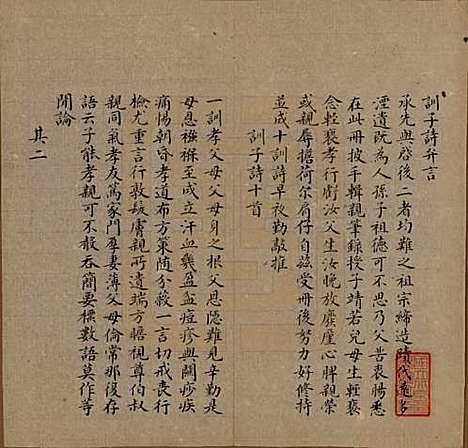 訓子詩弁言
承先與啓後二者均難之祖宗締造隨代遠多
湮遺既為人孫子祖德可不思乃父苦衷腸悉
在此冊披手輯親筆錄授子靖若兒母生輕褻
念輕褻孝行虧汝父生汝晚放縻廑心脾親榮
或親辱擔荷尔肩仔自茲受冊後努力好修持
並成十訓詩早夜勤敲推
訓子詩十首
一訓孝父母父母身之根父恩隱難見辛勤是
母恩襁褓至成立汗血幾盈盆痘疹與關疹疾
痛惕朝昏孝道布方策隨分殺一言切戒喪行
檢尤重言行敦髮膚親所遺端方瞻視尊伯叔
親同氣孝友篤家門孕妻薄父母倫常那復存
語云子能孝親可不教吞簡要標數語莫作等
閒論
其二